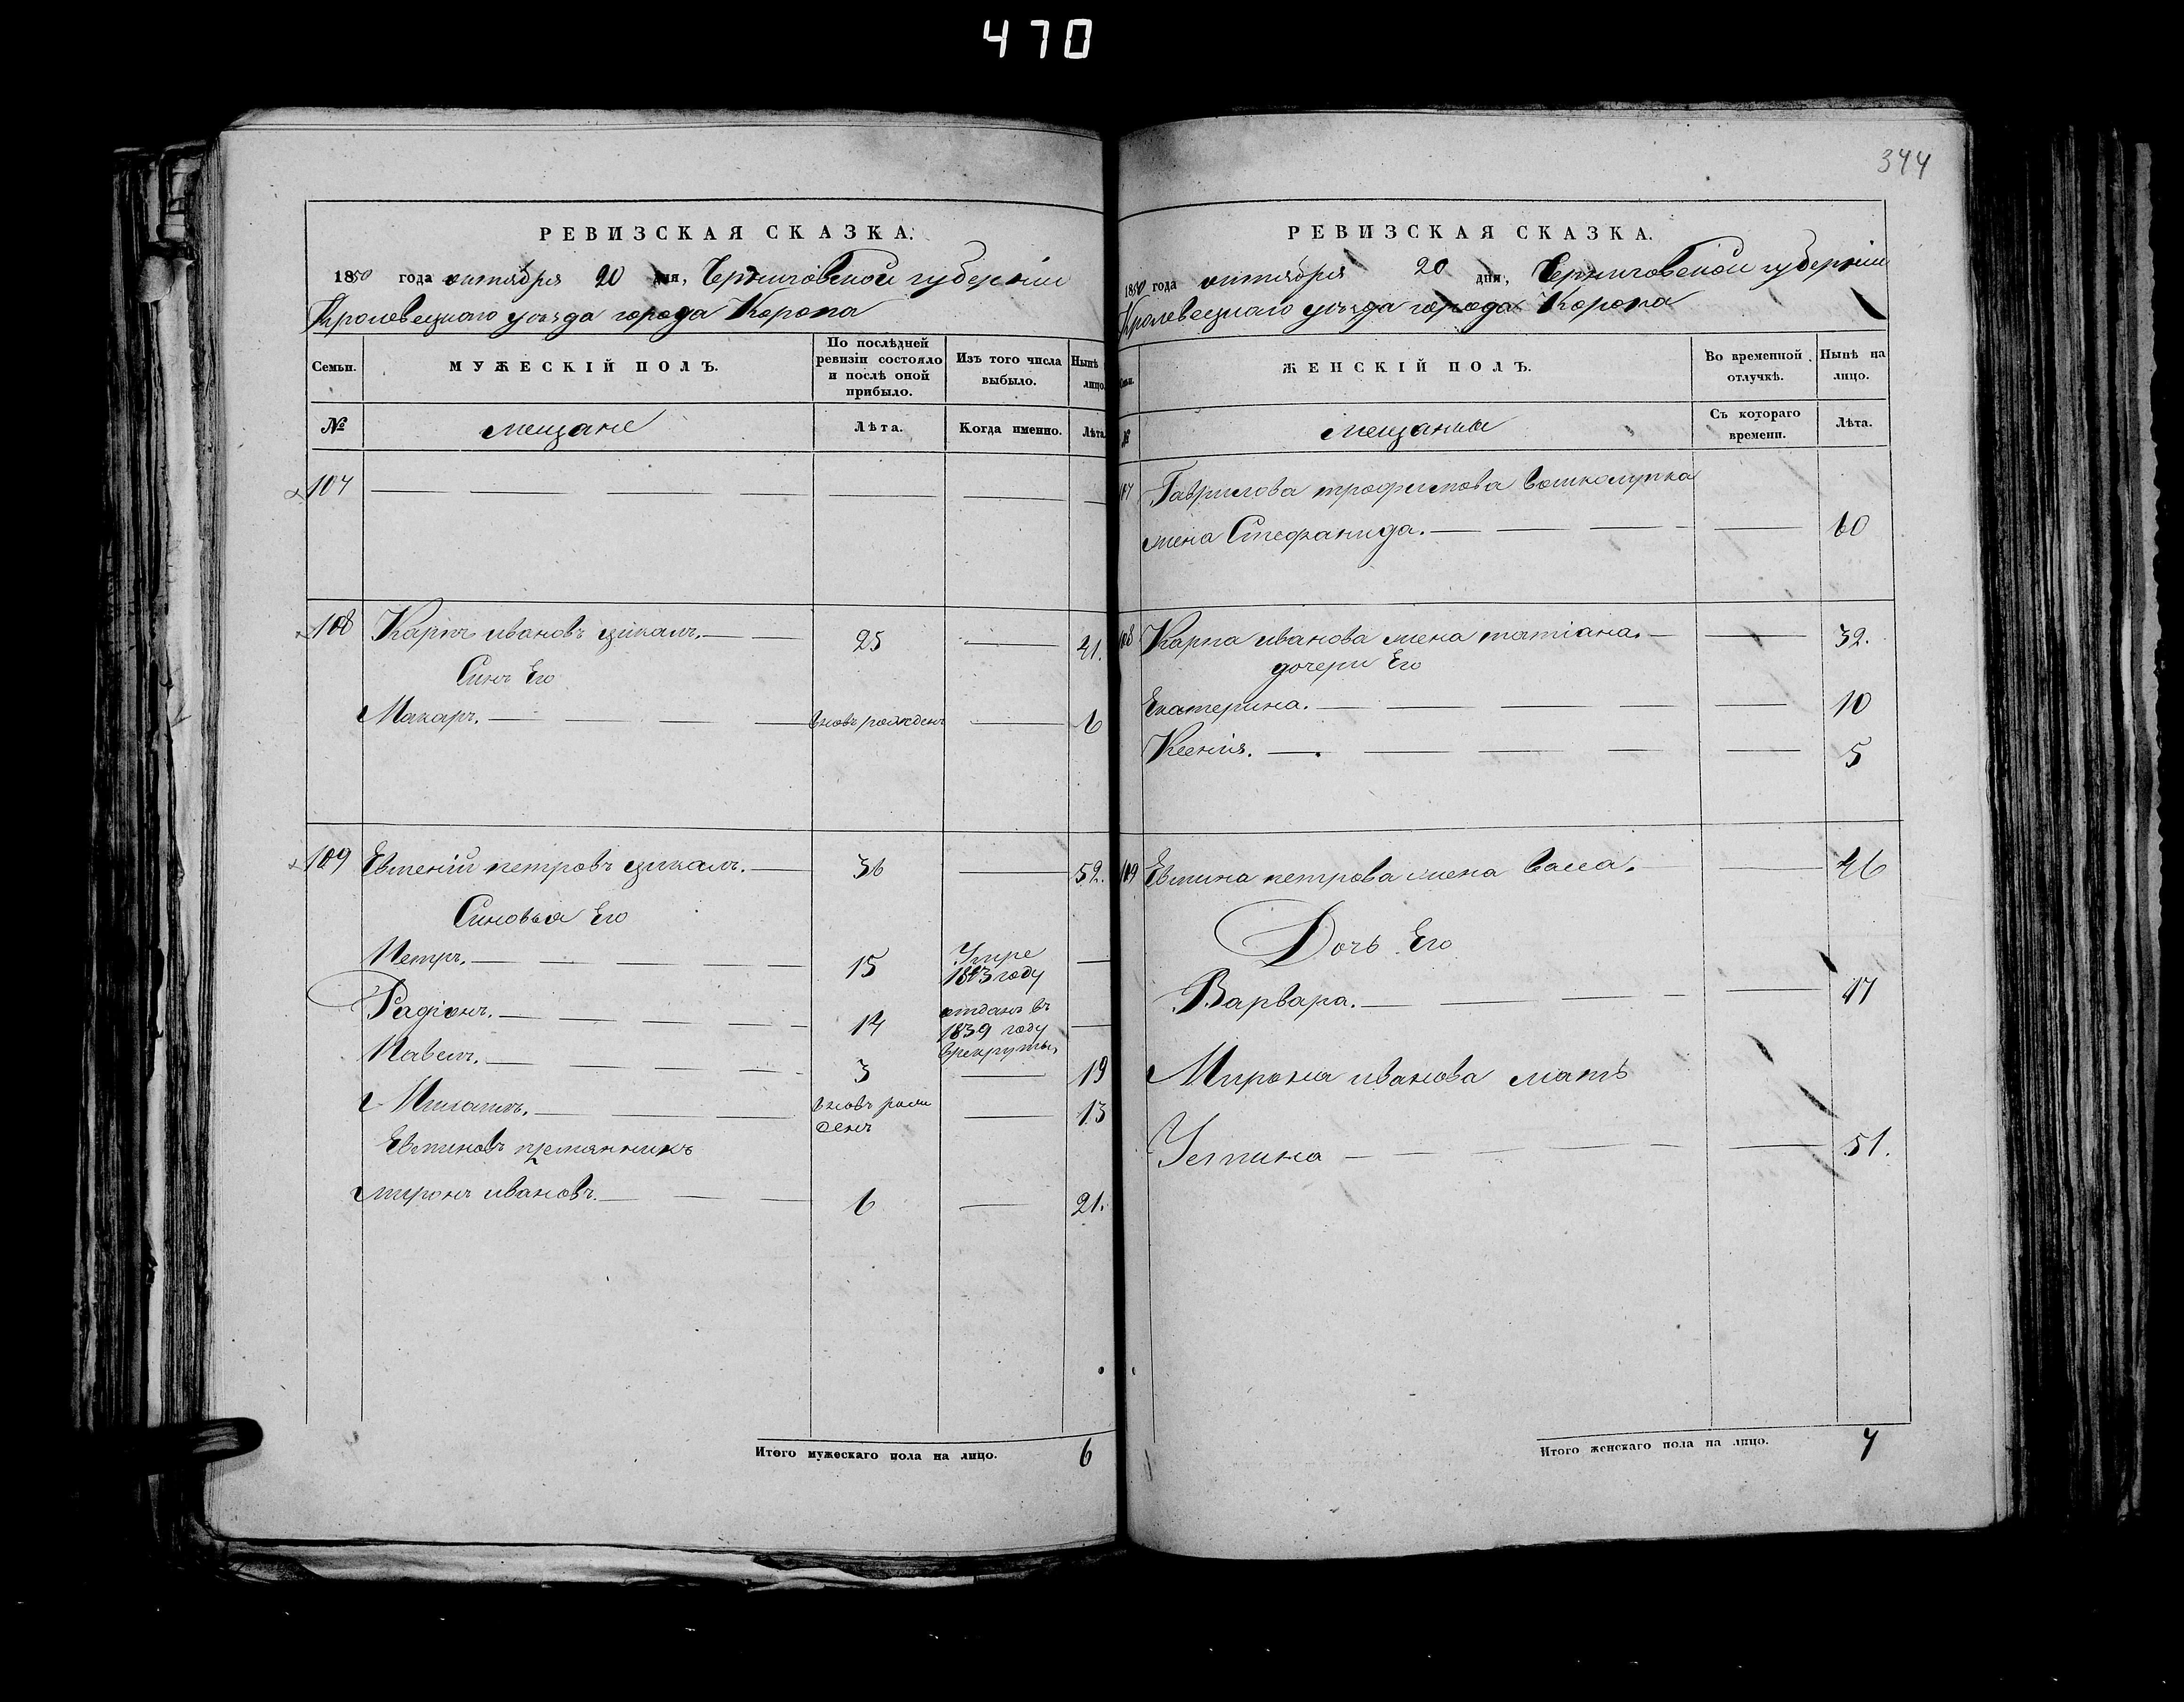 470
344
РЕВИЗСКАЯ СКАЗКА.
1850 года октября 20 дня, Черниговской губерніи
Кролевецкаго уезда города Коропа
Семьи.
МУЖЕСКІЙ ПОЛЪ.
По послѣдней ревизіи состояло и послѣ оной прибыло.
Изъ того числа выбыло.
Нынѣ лицо.
№
мещане
Лѣта.
Когда именно.
Лѣта.
107
108 Карпъ ивановъ цикалъ. 25 41.
Синъ Его
Макаръ. вновь рожденъ 6
109 Евтеній петровъ цикалъ. 36 52.
Синовья Его
Петръ. 15 Умре 1843 году
Радіонъ. 14 отданъ въ 1839 году врекруты
Павелъ. 3 19
Михаилъ. вновь рожденъ 13
Евтиновъ племянникъ
миронъ ивановъ. 6 21.
Итого мужескаго пола на лицо. 6
РЕВИЗСКАЯ СКАЗКА.
1850 года октября 20 дня, Черниговской губерніи
Кролевецкаго уезда города Коропа
Семьи.
ЖЕНСКІЙ ПОЛЪ.
Во временной отлучкѣ.
Нынѣ на лицо.
№
мещанки
Съ котораго времени.
Лѣта.
107 Гаврилова трофимова
жена Стефанида. 60
108 Карпа иванова жена татіана. 32.
дочери Его
Екатерина. 10
Ксенія. 5
109 Евтина петрова жена 46
Дочь Его
Варвара. 17
Мирона иванова мать
Устина 51.
Итого женскаго пола на лицо. 7